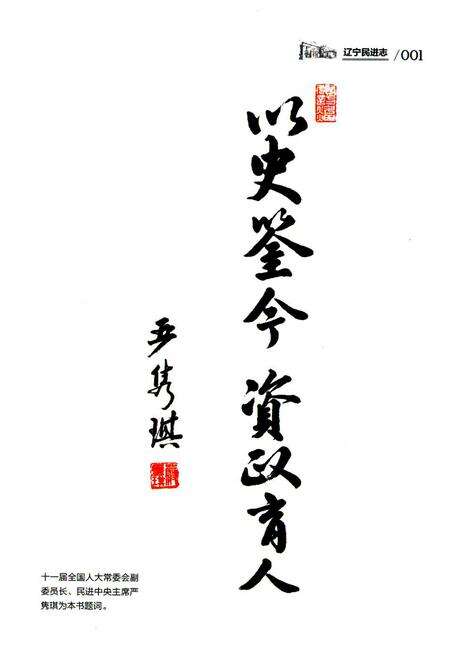 辽宁民进志 /001
以史鉴今 资政育人
严隽琪
十一届全国人大常委会副
委员长、民进中央主席严
隽琪为本书题词。